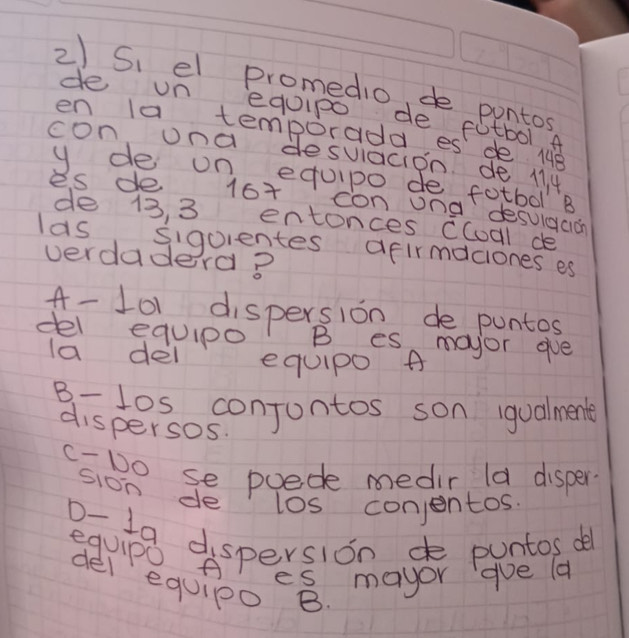 2) Si el promedio de puntos
de un equipo de futbol A
en la temporada es de 148
con una desviación de 11,4
y de un equipo de fotbol B
es de 167 con una desviación
de 13,3 entonces ¿Cual de
las siguientes afirmaciones es
verdadera?
A- la dispersión de puntos
del equipo B es mayor que
la del equipo A
B- los conjuntos son igualmente
dispersos.
C- No se puede medir la disper-
sión de los conjentos.
D- la dispersión de puntos del
equipo A es mayor que la
del equipo B.